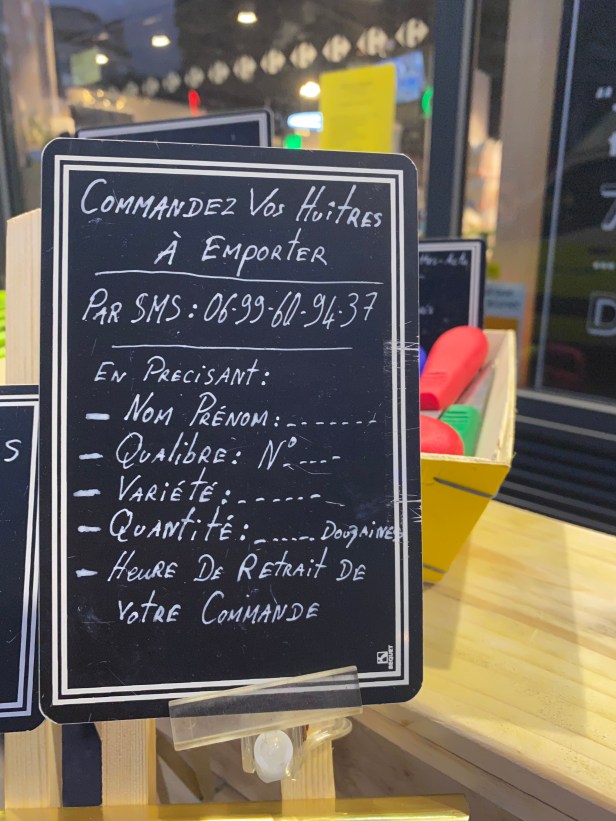 COMMANDEZ VOS HUÎTRES
À EMPORTER
PAR SMS : 06-99-60-94-37
EN PRECISANT :
- NOM PRÉNOM : - - - - - - -
- QUALIBRE : N° - - - -
- VARIÉTÉ : - - - - - -
- QUANTITÉ : - - - - - DOUZAINES
- HEURE DE RETRAIT DE
VOTRE COMMANDE
BEQUET
S